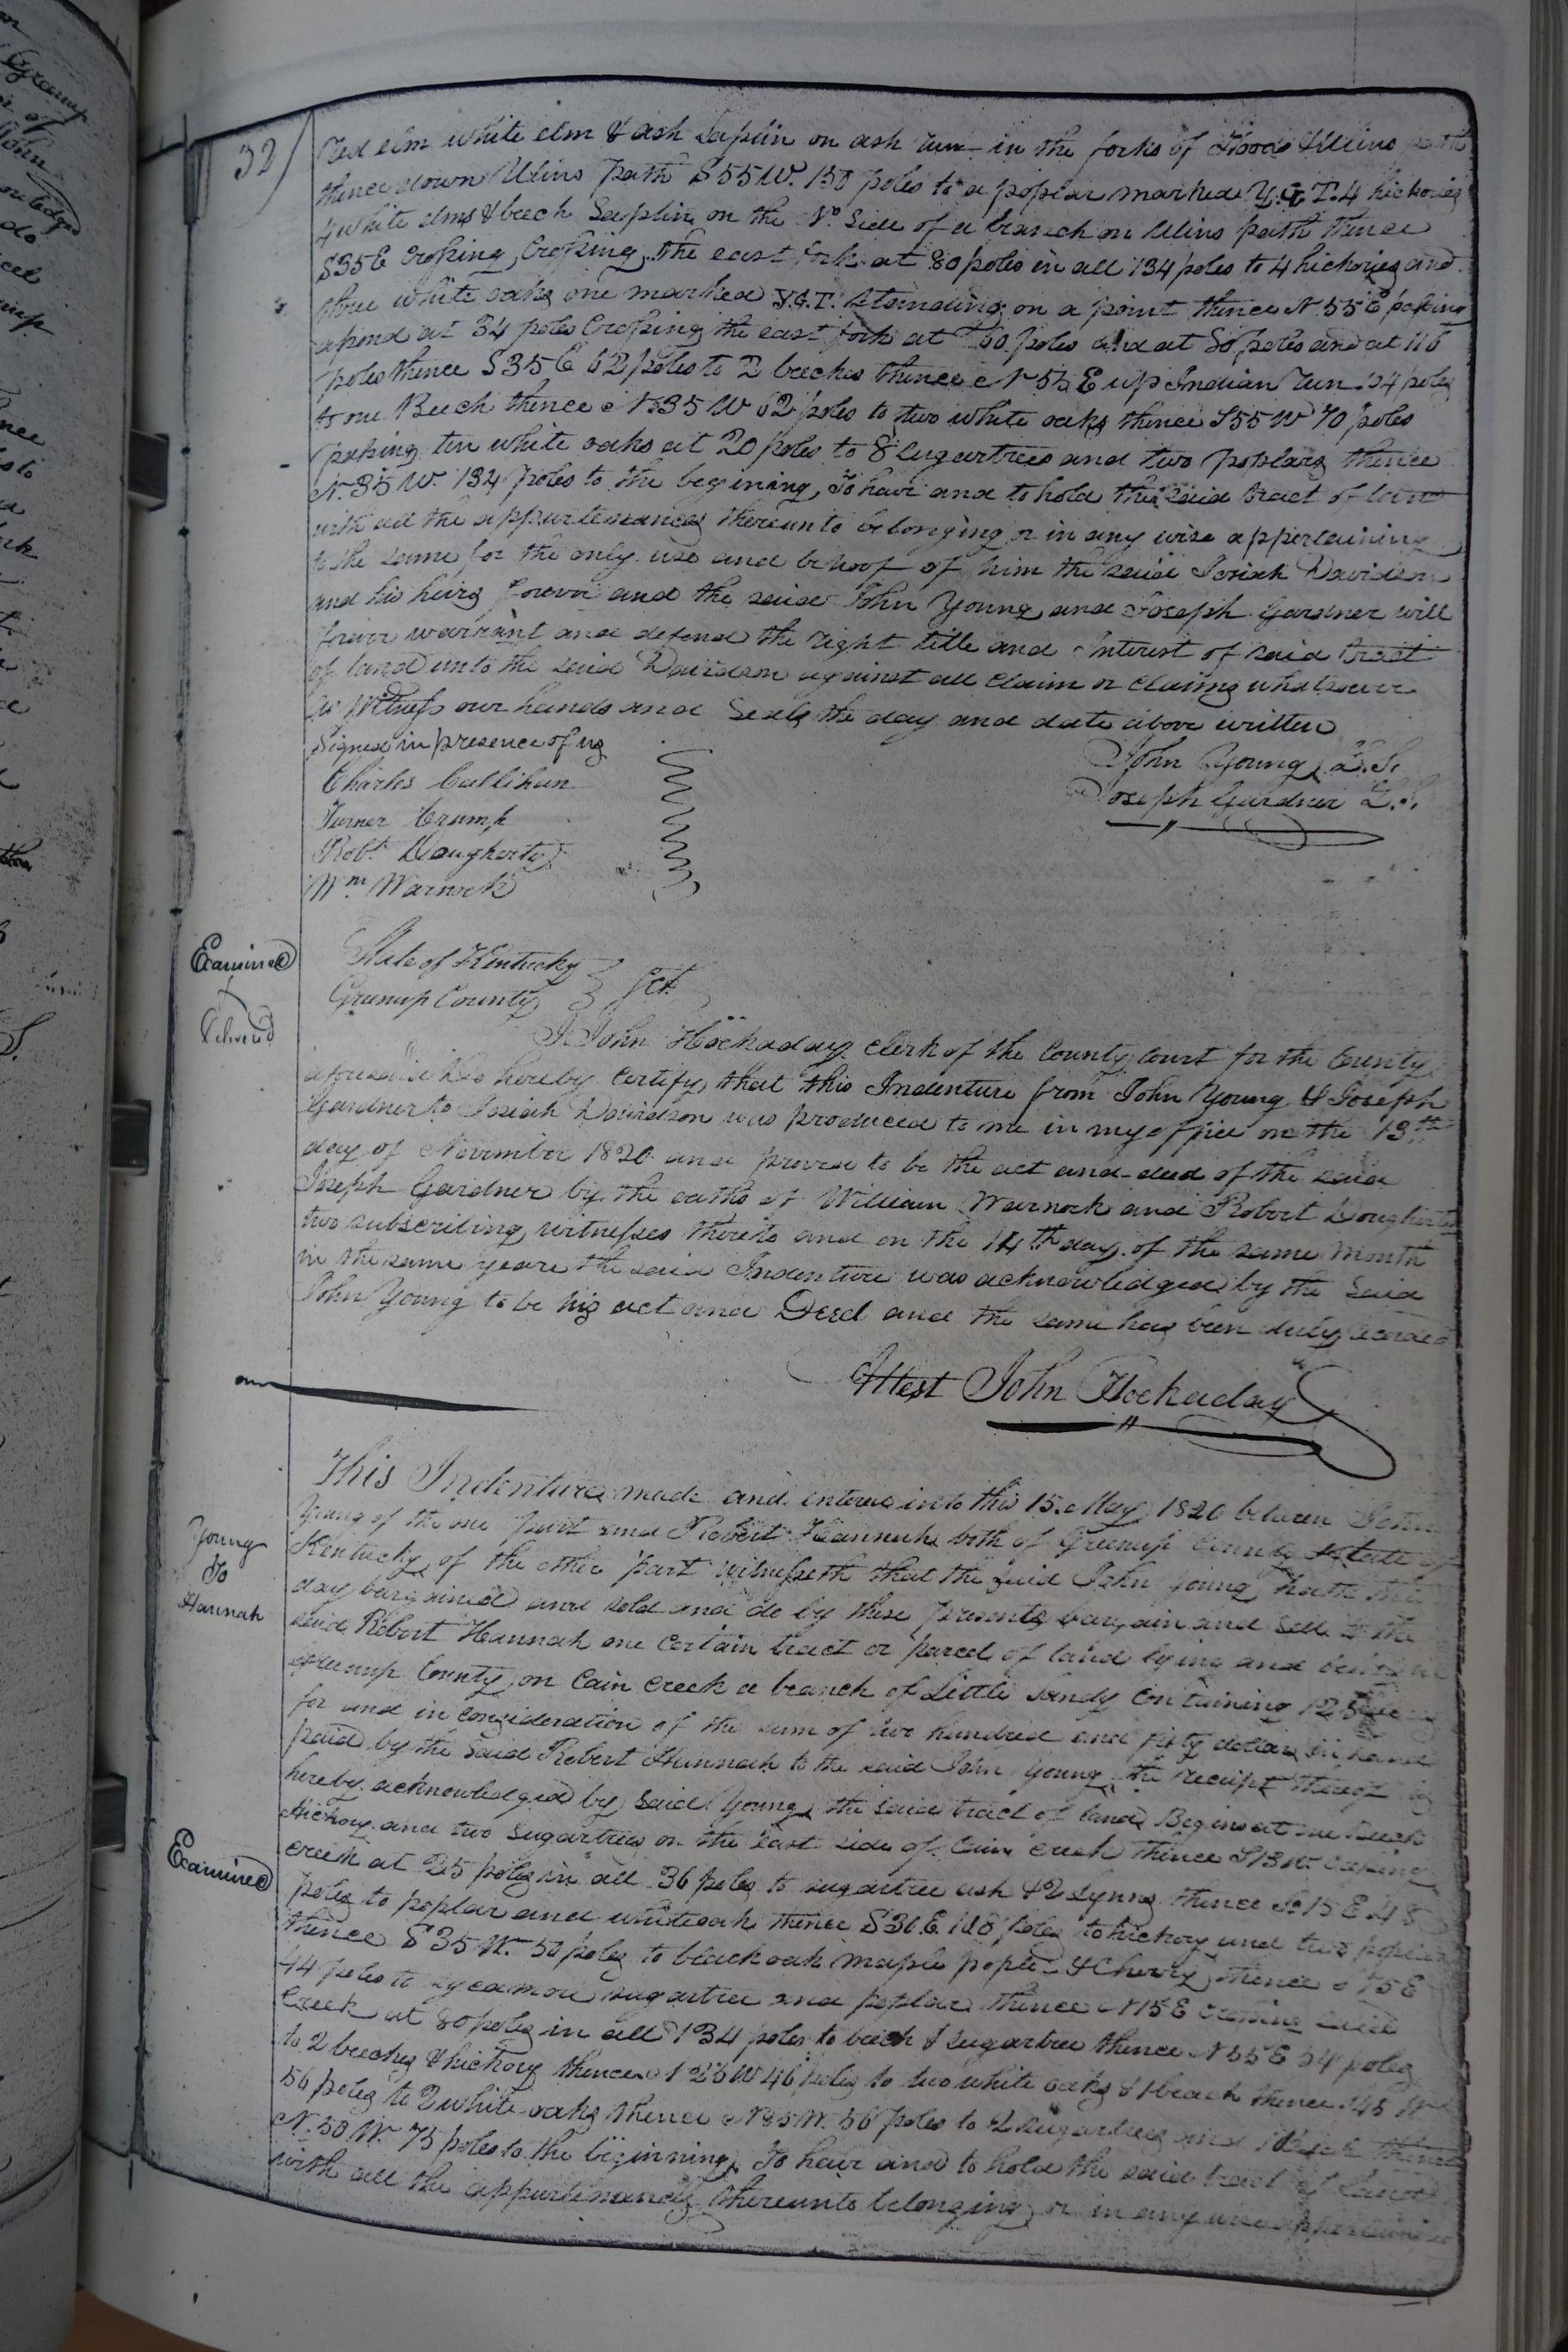 32
Red elm white elm & ash Saplin on ash run in the forks of Hoods & Ulins path
thence down Ulins path S55W. 150 poles to a poplar marked Y.G.T. 4 hickories
4 white elms & beech Saplin on the No Side of a branch on Ulins path thence
S35E Crossing Crossing the east fork at 80 poles in all 134 poles to 4 hickories and
three white oaks one marked Y.G.T. Standing on a point thence N.55E passing
a pond at 34 poles Crossing the east fork at 60 poles and at 80 poles and at 116
poles thence S35E 62 poles to 2 beeches thence N55E up Indian run 34 poles
to one Beech thence N35W 62 poles to two white oaks thence S55W 70 poles
passing ten white oaks at 20 poles to 8 Sugartrees and two poplars thence
N.35W. 134 poles to the begining, To have and to hold the said tract of land
with all the appurtenances thereunto belonging or in any wise appertaining
to the same for the only use and behoof of him the said Josiah Davidson
and his heirs forever and the said John Young and Joseph Gardner will
forever warrant and defend the right title and Interest of said tract
of land unto the said Davidson against all claim or claims whatsoever
As Witness our hands and Seals the day and date above written
Signed in presence of us
John Young L.S.
Charles Callihan
Joseph Gardner L.S.
Turner Crump
Robt. Dougherty
Wm Warnock
Examined
State of Kentucky
Greenup County } Sct.
Delivered
I John Hockaday clerk of the County Court for the County
aforesaid Do hereby Certify that this Indenture from John Young & Joseph
Gardner to Josiah Davidson was produced to me in my office on the 13th
day of November 1820 and proven to be the act and deed of the said
Joseph Gardner by the oaths of William Warnock and Robert Dougherty
two subscribing witnesses thereto and on the 14th day of the same month
in the same yeare the said Indenture was acknowledged by the Said
John Young to be his act and Deed and the same has been duly recorded
Attest John Hockaday
This Indenture made and entered into this 15. May 1820 between John
Young
To
Hannah
Young of the one part and Robert Hannah both of Greenup County State of
Kentucky of the other part witnesseth that the said John Young hath this
day bargained and sold and do by these presents bargain and sell to the
said Robert Hannah one certain tract or parcel of land lying and being in
Greenup County on Cain Creek a branch of Little Sandy Containing 125
for and in consideration of the sum of two hundred and fifty dollars in hand
paid by the Said Robert Hannah to the said John Young the receipt thereof is
hereby acknowledged by Said Young the said tract of land Begins at one beech
Hickory and two Sugartrees on the east side of Cain Creek thence S13W. crossing
Examined
creek at 25 poles in all 36 poles to sugartree ash & 2 Lynns thence S15E 48
poles to poplar and whiteoak thence S36.E. 108 poles to hickory and two poplars
thence S35W. 50 poles to black oak maple & Cherry thence 75E
44 poles to sycamore sugartree and poplar thence N15E crossing said
Creek at 80 poles in all 134 poles to beech & sugartree thence N55E 54 poles
to 2 beeches & hickory thence 25W 46 poles to two white oaks & 1 beach thence 45W
56 poles to 2 white oaks thence N85W. 56 poles to 2 sugartrees and thence
N.50W. 75 poles to the beginning, To have and to hold the said tract of Land
with all the appurtenances thereunto belonging or in any wise appertaining